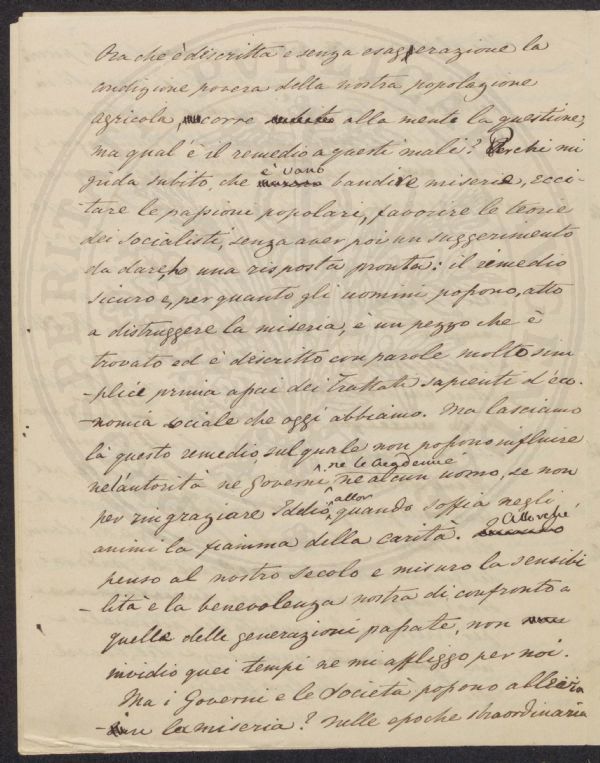 Ora che è discritta e senza esagerazione la
condizione povera della nostra popolazione
agricola, corre alla mente la questione,
ma qual'è il remedio a questi mali? Perchè mi
grida subito, che è vano bandire miserie, ecci-
tare le passioni popolari, favorire le teorie
dei socialisti, senza aver poi un suggerimento
da dare, o una risposta pronta: il remedio
sicuro e, per quanto gli uomini possono, atto
a distruggere la miseria, è un pezzo che è
trovato ed è descritto con parole molto sim
-plici prima assai dei Trattati sapienti d'eco
-nomia sociale che oggi abbiamo. Ma lasciamo
là questo remedio, sul quale non possono influire
nè l'autorità ne Governi ne le Accademie nè alcun uomo, se non
per ringraziare Iddio, allor quando soffia negli
animi la fiamma della carità. Allorchè
penso al nostro secolo e misuro la sensibi
-lità e la benevolenza nostra di confronto a
quelle delle generazioni passate, non
invidio quei tempi ne mi affliggo per noi.
Ma i Governi e le Società possono
la miseria? Nelle epoche straordinarie